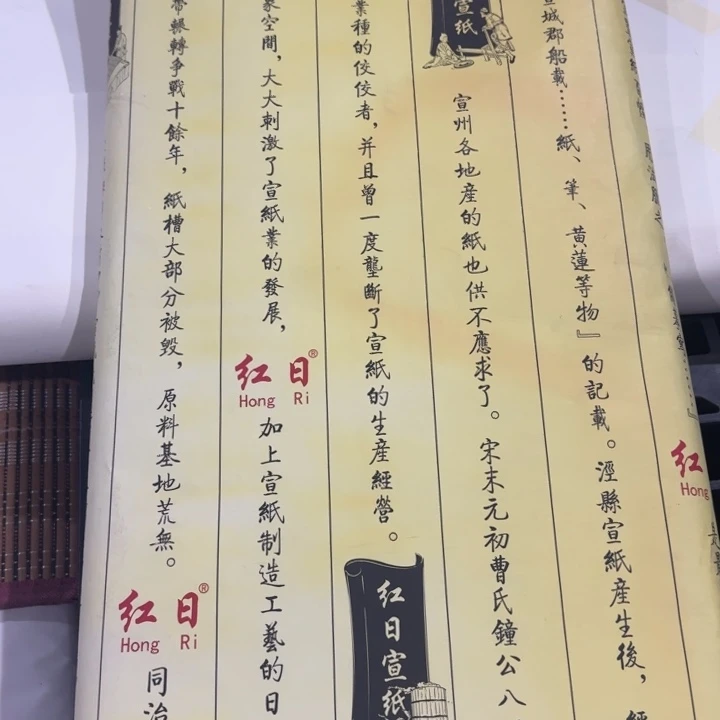 宣城郡船載……紙、筆、黃蓮等物』的記載。涇縣宣紙產生後,經
宣紙
宣州各地產的紙也供不應求了。宋末元初曹氏鐘公八
業種的佼佼者,并且曾一度壟斷了宣紙的生產經營。
红日宣紙
空間,大大刺激了宣紙業的發展,
红日®
Hong Ri
加上宣紙制造工藝的日
輾轉爭戰十餘年,紙槽大部分被毀,原料基地荒無。
红日®
Hong Ri
同治
红
Hong